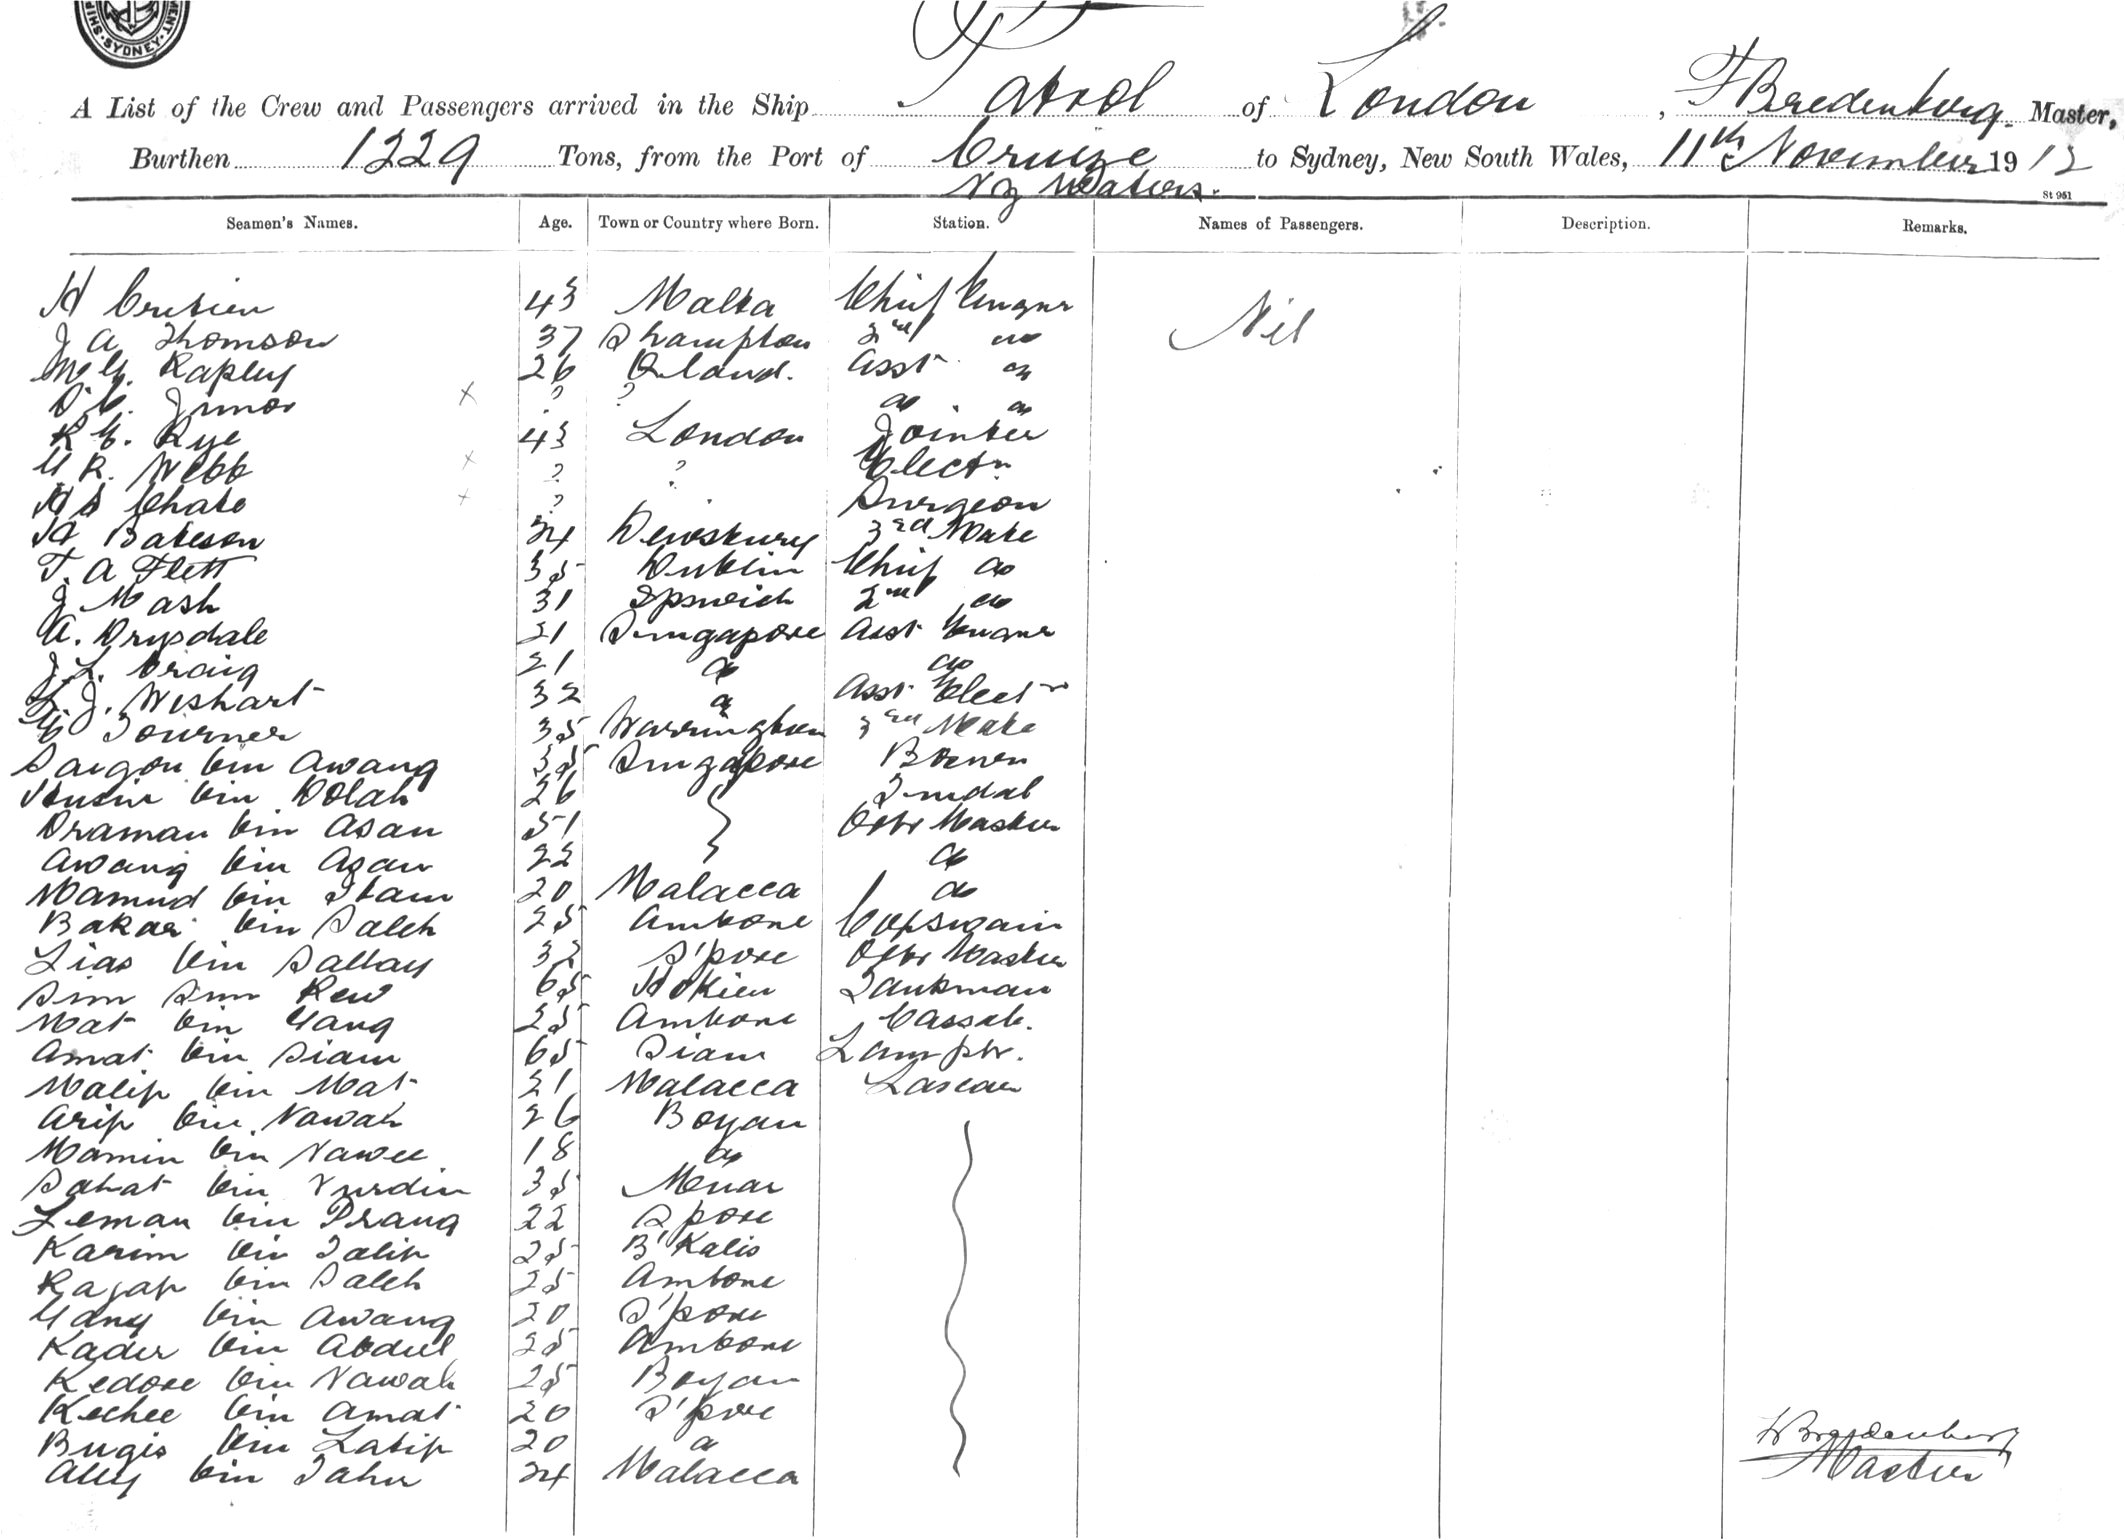 SHIP MENT SYDNEY
A List of the Crew and Passengers arrived in the Ship Patrol of London, F Bredenberg Master,
Burthen 1229 Tons, from the Port of Cruize to Sydney, New South Wales, 11th November 1912
NZ Waters.
St 951
Seamen's Names. Age. Town or Country where Born. Station. Names of Passengers. Description. Remarks.
H Crusien 43 Malta Chief Engnr Nil
J A Thomson 37 Shampton 2nd do
Rapley 26 Asst do
Junor ? ? do do
R E. Rye 43 London Jointer
G R. Webb ? ? Electn
H S Chate ? Surgeon
H Bateson 24 Dewsbury 3rd Mate
T. A Flett 35 Dublin Chief do
J Mash 31 Ipswich 2nd do
A. Drysdale 21 Singapore Asst Engnr
J. L. Craig 21 do do
J. Wishart 32 do Asst Elect
Tourner 35 Warrington 3rd Mate
Saigon bin Awang 35 Singapore Bosen
Husin bin Dolah 26 Tindal
Draman bin Asan 51 Qtr Master
Awang bin Asan 22 do
Mamud bin Itam 20 Malacca do
Bakar bin Saleh 25 Ambone Copswain
Lias bin Sallay 32 S'pore Qtr Master
Sim Sim Kew 65 Hokien Tankman
Mat bin Yang 25 Ambone Cassab.
Amat bin Siam 65 Siam Lamptr.
Malip bin Mat 21 Malacca Lascar
Arip bin Nawah 26 Boyan
Mamin bin Nawee 18 do
Sahat bin Nurdin 35 Menar
Leman bin Prang 22 S'pore
Karim bin Talip 25 B'Kalis
Rajap bin Saleh 25 Ambone
Yany bin Awang 20 S'pore
Kader bin Abdul 25 Ambone
Kedore bin Nawah 25 Boyan
Kechee bin Amat 20 S'pore
Bugis bin Latip 20 do
Ally bin Tahir 24 Malacca
Bredenberg
Master